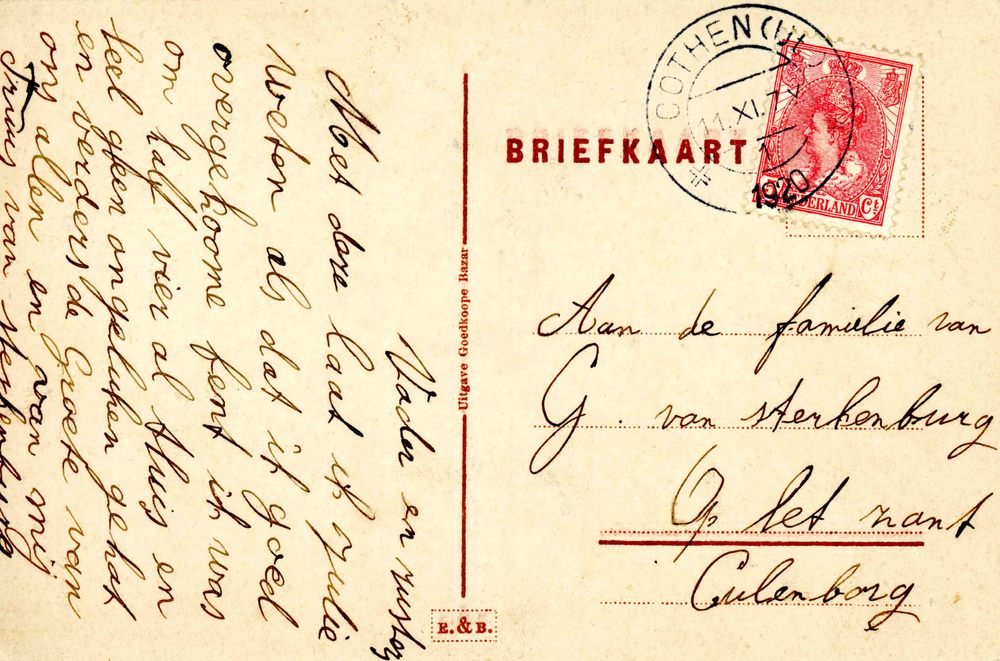 Vader en zuster
Met deze laat ik julie
Weten als dat ik goed
overgekoome bent ik was
om half vier al thuis en
heel geen ongelukken gehat
en verders de Groete van
ons allen en van mij
Truus van sterkenburg
Uitgave Goedkoope Bazar
E. & B.
BRIEFKAART
COTHEN (Ut
11.XI
1920
NEDERLAND Ct
Aan de familie van
G. van sterkenburg
Op let zant
Culenborg